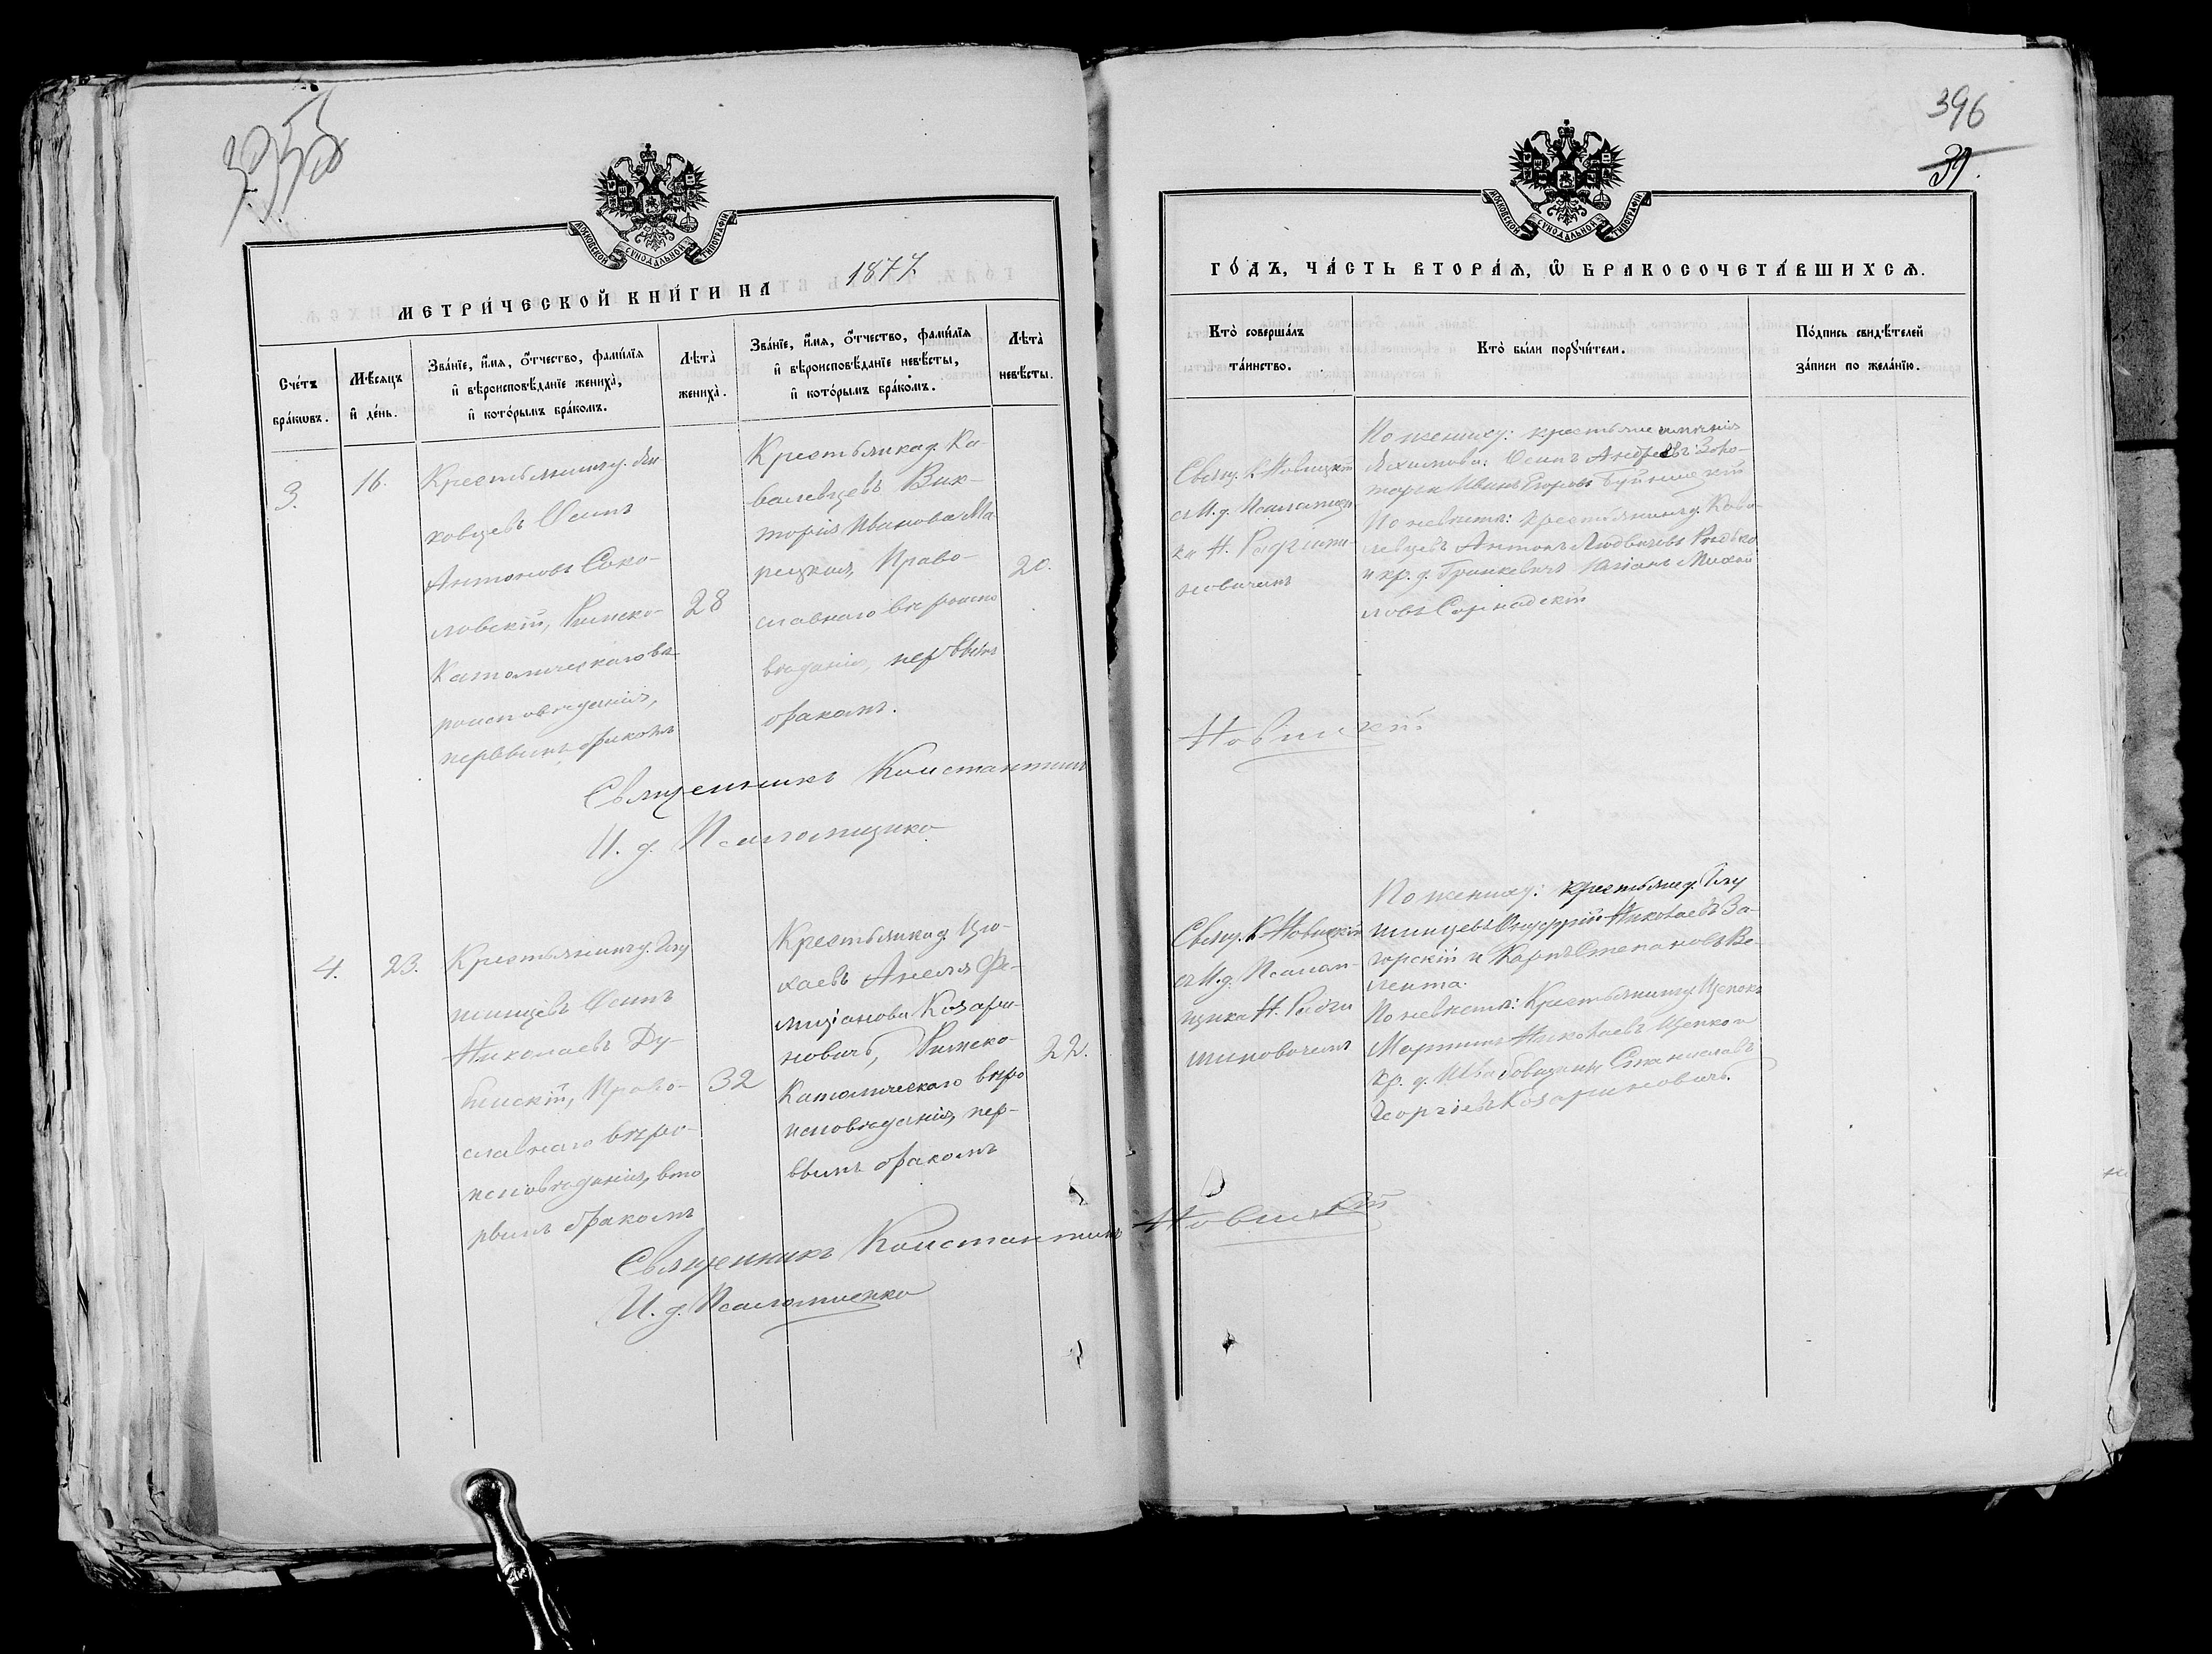 396
39.
МОСКОВСКОЙ СѴНОДАЛЬНОЙ ТИПОГРАФІИ
МЕТРИ́ЧЕСКОЙ КНИ́ГИ НА 1877.
Сче́тъ бра́кѡвъ.
Мѣ́сяцъ и҆ де́нь.
Зва́нїе, и҆́мѧ, ѻ҆́тчество, фами́лїѧ
и҆ вѣроисповѣ́данїе жениха̀,
и҆ кото́рымъ бра́комъ.
Лѣта̀ жениха̀.
Зва́нїе, и҆́мѧ, ѻ҆́тчество, фами́лїѧ
и҆ вѣроисповѣ́данїе невѣ́сты,
и҆ кото́рымъ бра́комъ.
Лѣта̀ невѣ́сты.
3.
16.
Крестьянинъ д.
ковцевъ Осипъ
Антоновъ Соко-
ловскій, Римско-
Католическаго вѣ-
роисповѣданія,
первымъ бракомъ
28
Крестьянка д. Ко-
валевцевъ Вик-
торія Иванова Ма
рецкая, Право-
славнаго вѣроиспо
вѣданія, первымъ
бракомъ.
20.
Священникъ Константинъ
И. д. Псаломщика
4.
23.
Крестьянинъ д. Глу
шинцевъ Осипъ
Николаевъ Ду-
бинскій, Право-
славнаго вѣро-
исповѣданія, вто
рымъ бракомъ
32
Крестьянка д.
хаевъ Анеля Фе-
лиціанова Козари-
новичъ, Римско-
Католическаго вѣро
исповѣданія, пер-
вымъ бракомъ
22.
Священникъ Константинъ
И. д. Псаломщика
МОСКОВСКОЙ СѴНОДАЛЬНОЙ ТИПОГРАФІИ
ГО́ДЪ, ЧА́СТЬ ВТОРА́Ѧ, Ѽ БРАКОСОЧЕТА́ВШИХСѦ.
Кто̀ соверша́лъ
та́инство.
Кто̀ бы́ли порꙋчи́тели.
По́дпись свидѣ́телей
за́писи по жела́нїю.
Свящ. К. Новицкій
съ И. д. Псаломщи
ка Н.
новичемъ
По женихѣ: крестьяне имѣнія
Осипъ Андреевъ
Иванъ Егоровъ
По невѣстѣ: Крестьянинъ д. Кова
левцевъ Антонъ Людвиговъ
и кр. д. Гринкевичъ Михай
ловъ
Новицкій
Свящ. К. Новицкій
съ И. д. Псалом-
щика Н.
шиновичемъ
По женихѣ: крестьяне д. Глу
шинцевъ Онуфрій Николаевъ За-
горскій и Карпъ Степановъ Ве-
лента.
По невѣстѣ: Крестьянинъ д.
Мартинъ Николаевъ
кр. д. Станиславъ
Георгіевъ Козариновичъ.
Новицкій